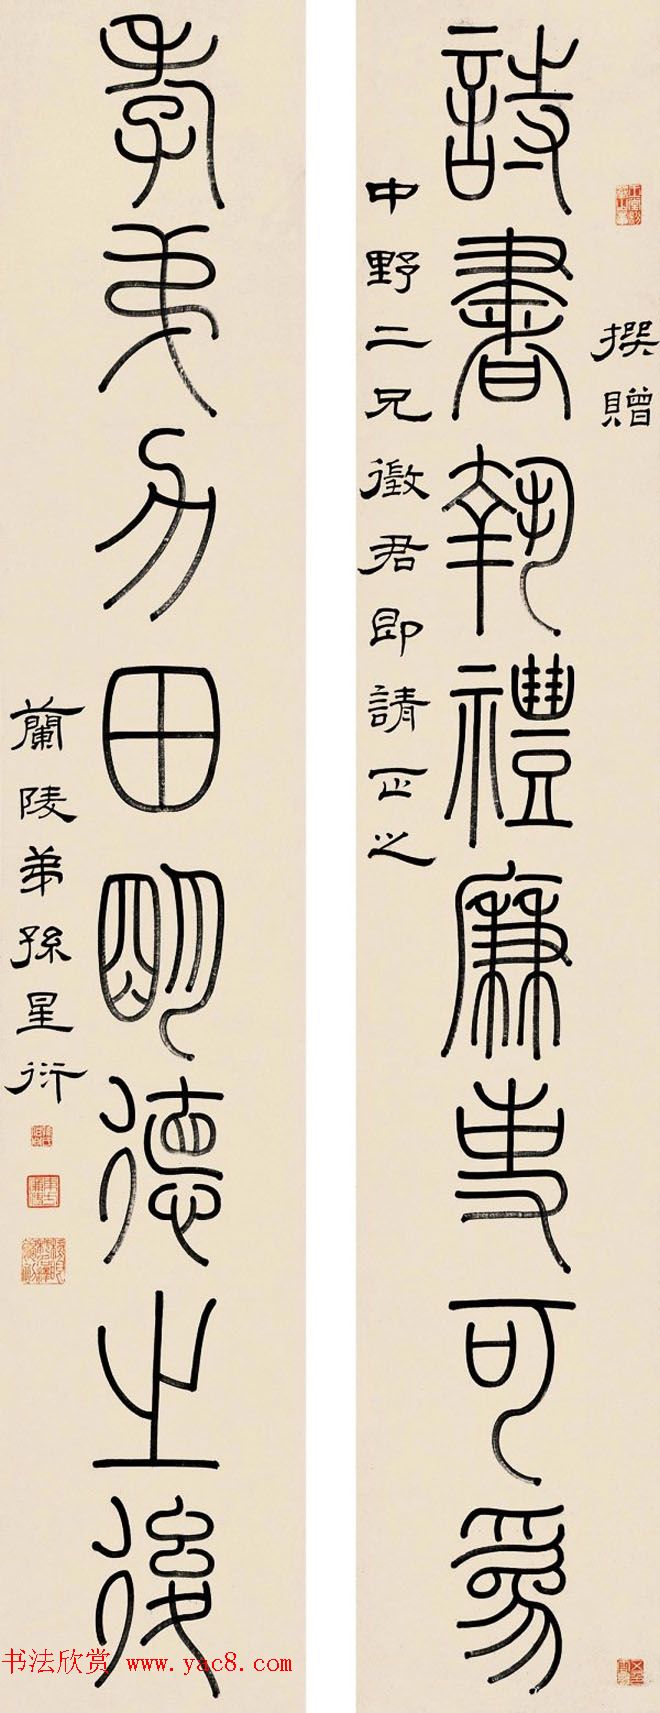 撰贈
詩書執禮廉吏可為
中野二兄徵君即請正之
孝弟力田明德之後
蘭陵弟孫星衍
书法欣赏 www.yac8.com